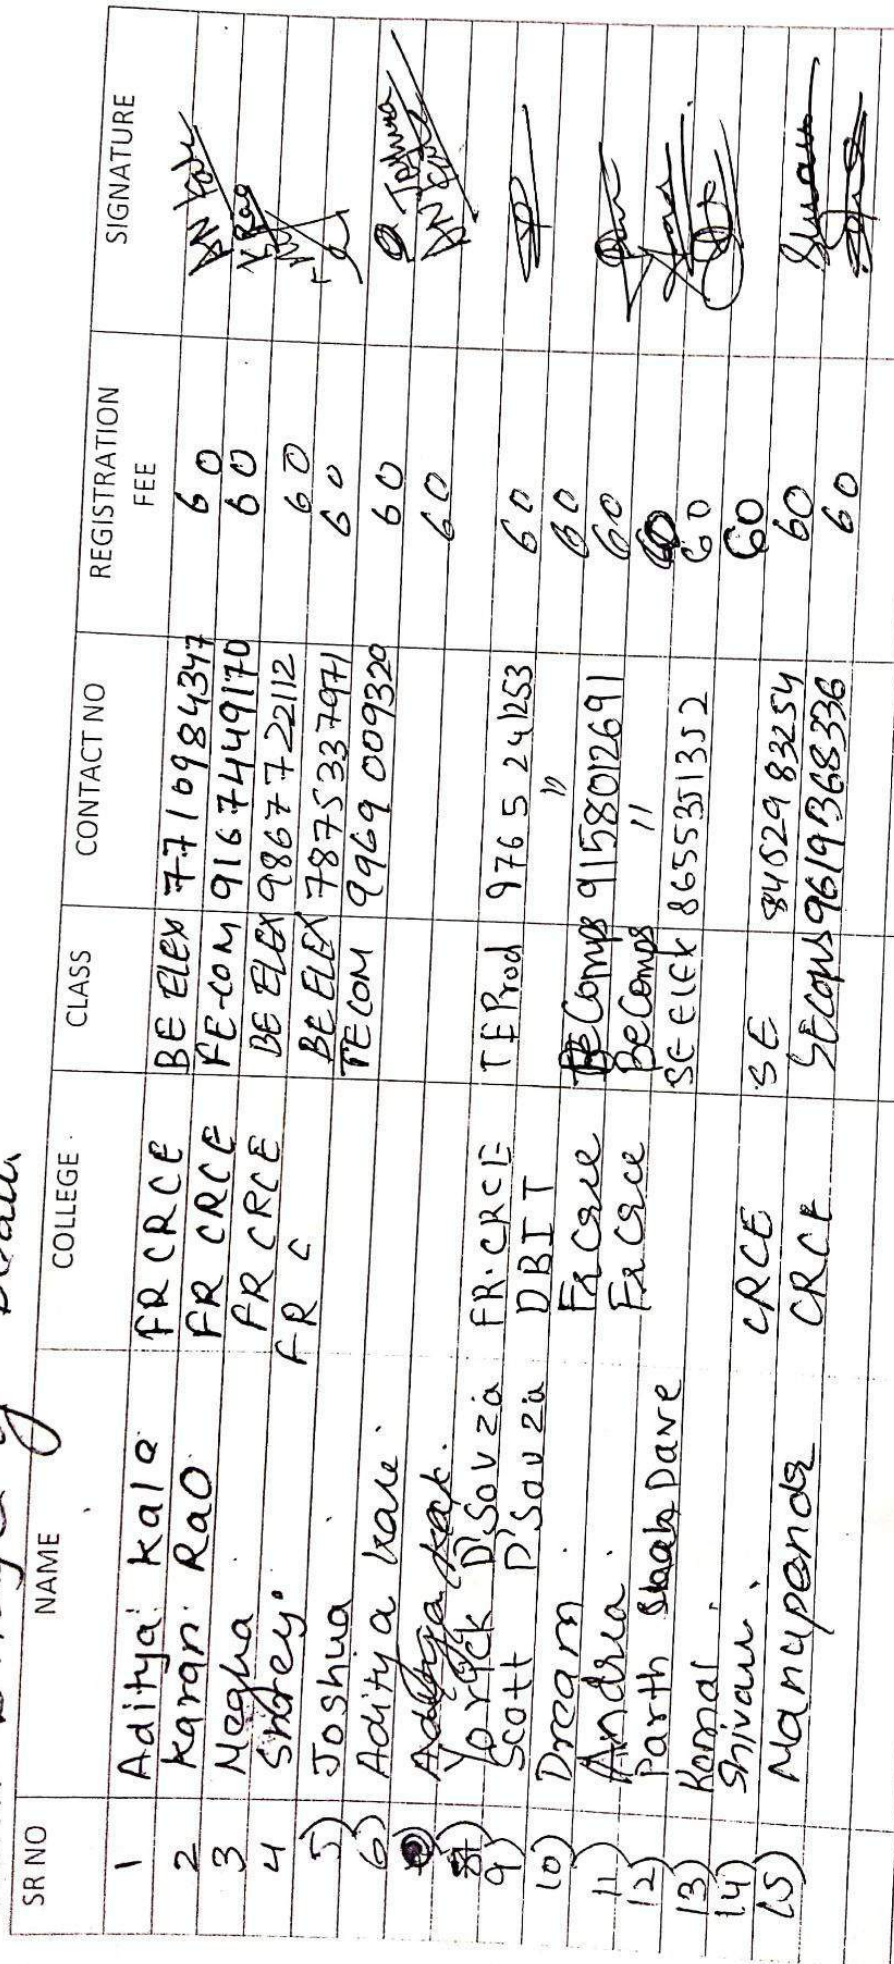 SR NO NAME COLLEGE. CLASS CONTACT NO REGISTRATION FEE SIGNATURE
1 Aditya Kale FR CRCE BE ELEX 7710984347 60
2 Karan Rao FR CRCE FE-COM 9167449170 60 K Rao
3 Megha FR CRCE BE ELEX 9867722112 60
4 Shrey. FR C BE ELEX 7875337971 60
5) Joshua TECOM 9969009320 60 Joshua
6) Aditya kale 60
Yorick D'Souza FR.CRCE TE Prod 9765241253 60
9) Scott D'Souza DBIT " 60
10) Dream Fr Crce BE Comps 9158012691 60
11) Andria. Fr Crce Be Comps " 60
12) Parth Dave SE ELEX 8655351352 60
13) Komal. 60
14) Shivam. CRCE SE 8452983254 60 Shivam
15) CRCE SE comps 9619368336 60